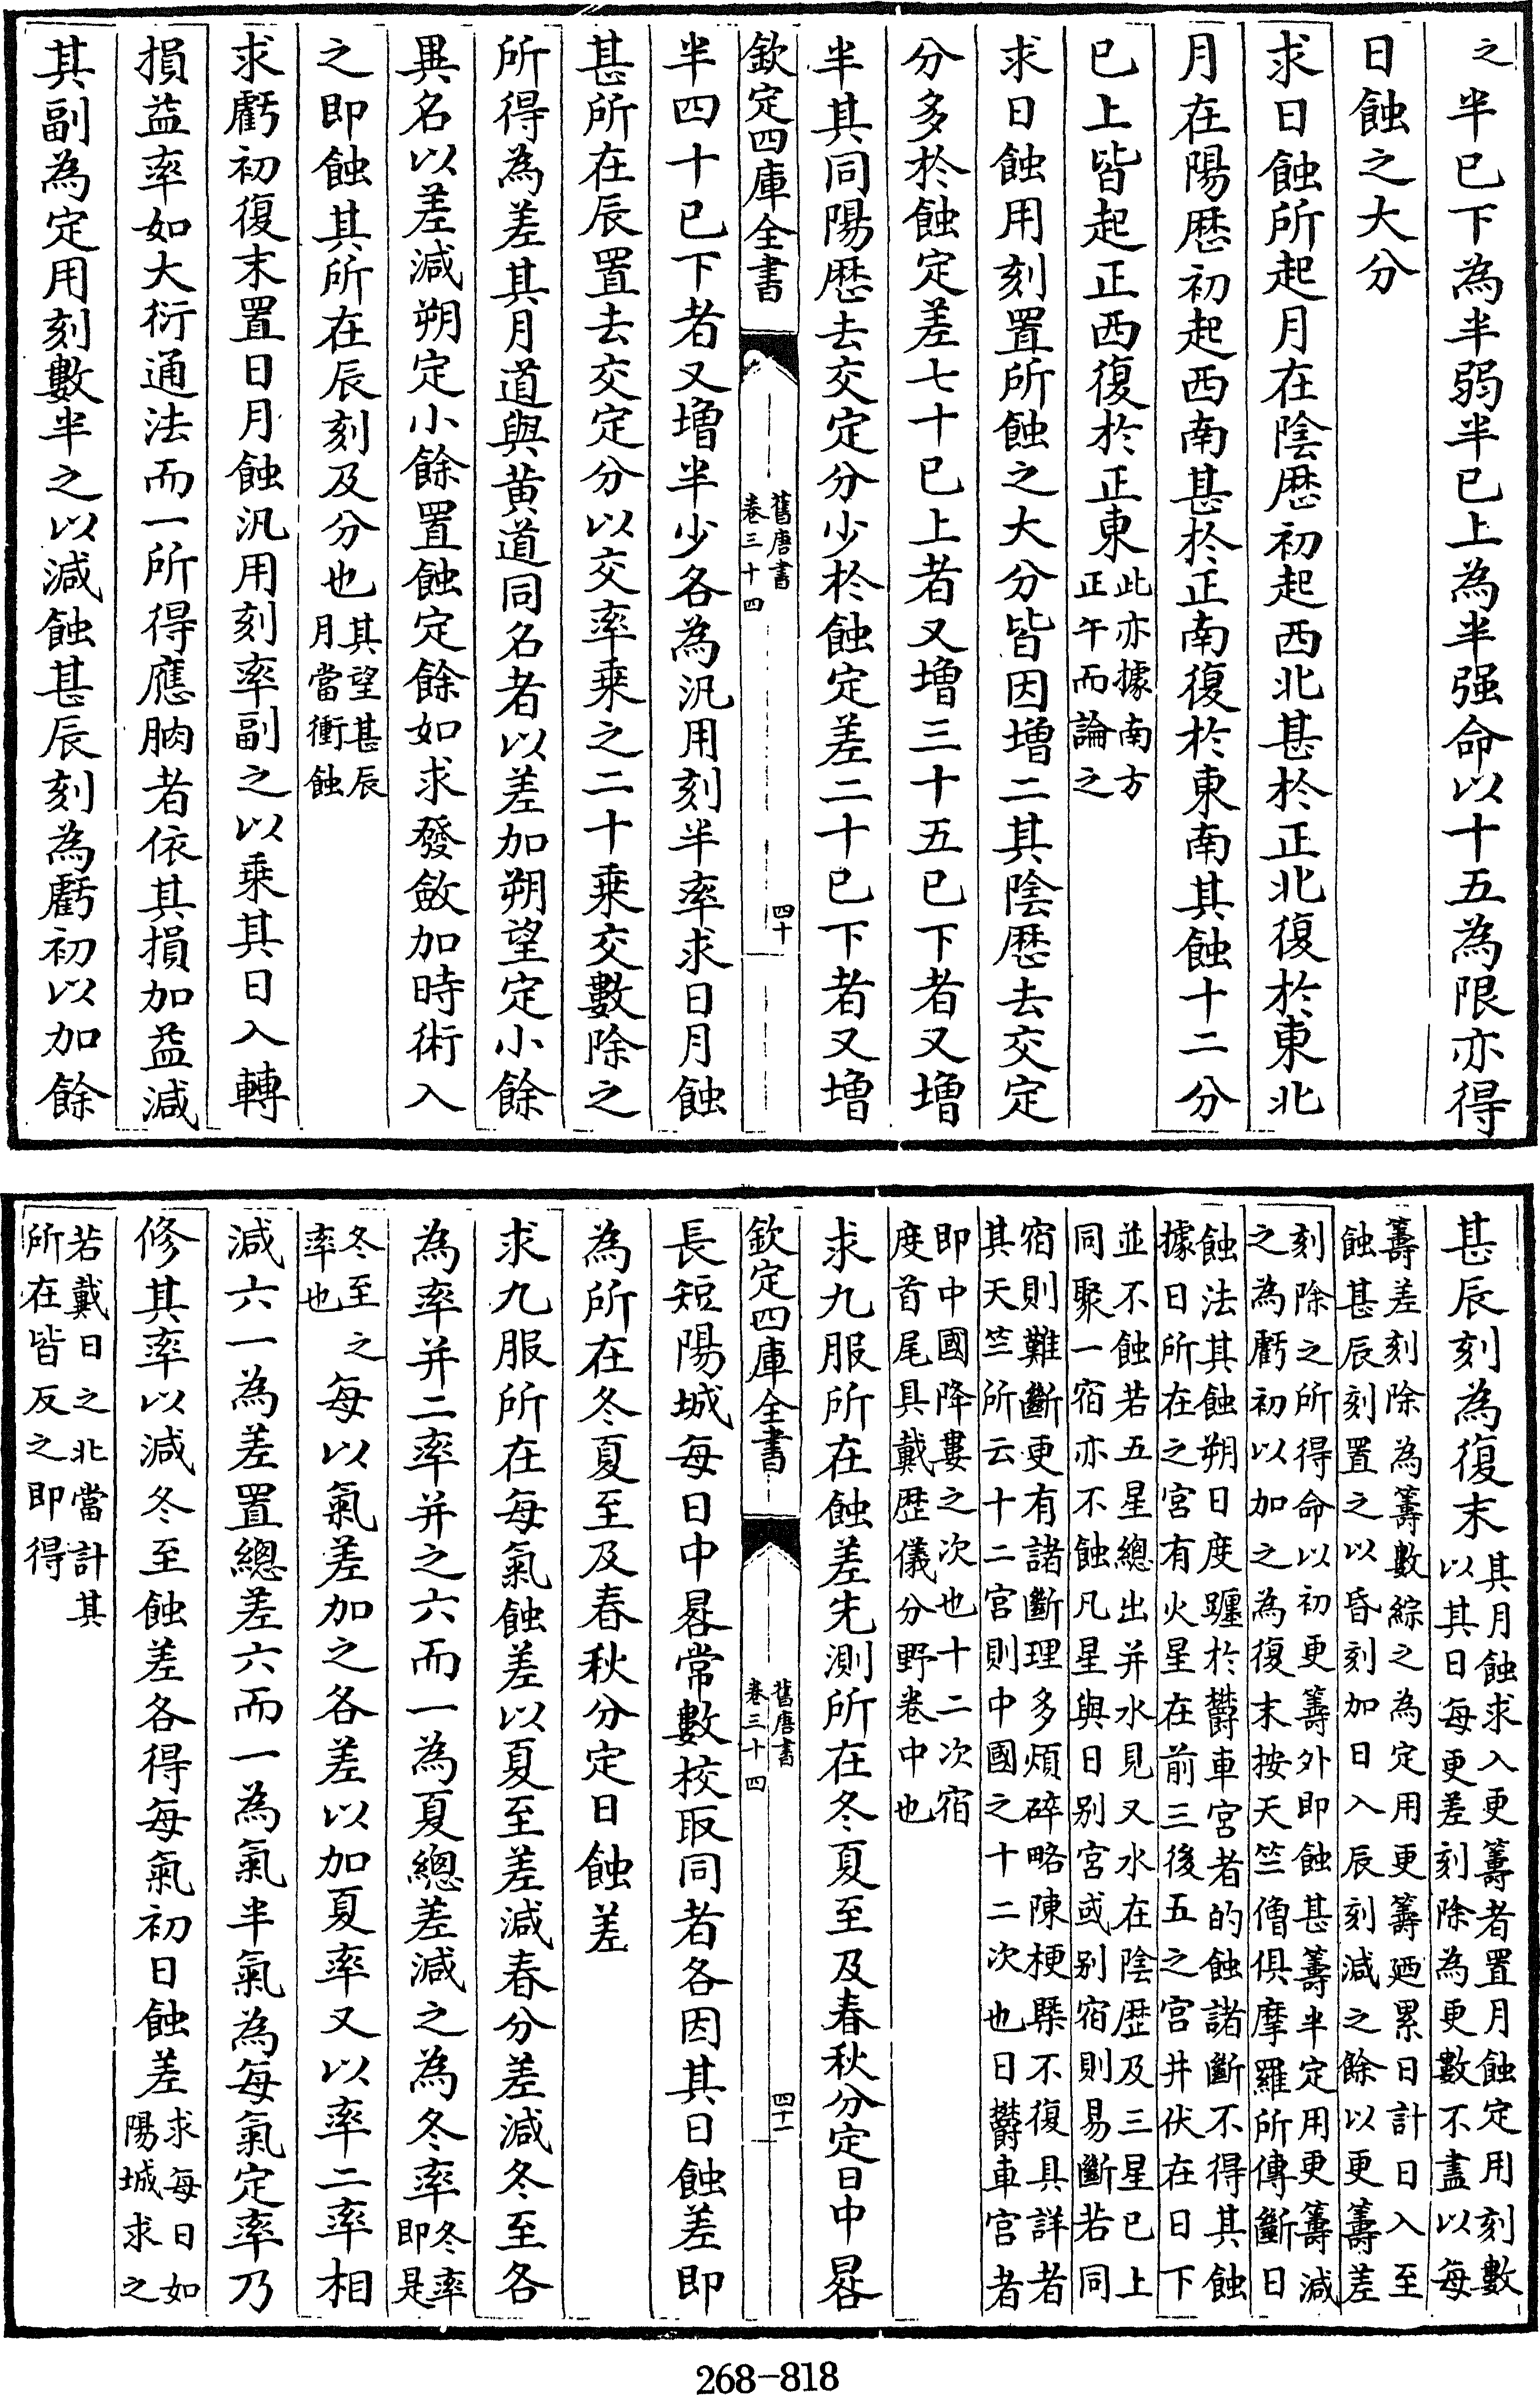 之半已下為半弱半已上為半强命以十五為限亦得
日蝕之大分
求日蝕所起月在陰厯初起西北甚於正北復於東北
月在陽厯初起西南甚於正南復於東南其蝕十二分
已上皆起正西復於正東此亦據南方
正午而論之
求日蝕用刻置所蝕之大分皆因增二其陰厯去交定
分多於蝕定差七十已上者又增三十五已下者又增
半其同陽厯去交定分少於蝕定差二十已下者又增
欽定四庫全書
舊唐書
卷三十四
四十
半四十已下者又增半少各為汎用刻半率求日月蝕
甚所在辰置去交定分以交率乗之二十乗交數除之
所得為差其月道與黄道同名者以差加朔望定小餘
異名以差減朔定小餘置蝕定餘如求發斂加時術入
之即蝕其所在辰刻及分也其望甚辰
月當衝蝕
求虧初復末置日月蝕汎用刻率副之以乗其日入轉
損益率如大衍通法而一所得應朒者依其損加益減
其副為定用刻數半之以減蝕甚辰刻為虧初以加餘
甚辰刻為復末其月蝕求入更籌者置月蝕定用刻數
以其日每更差刻除為更數不盡以每
籌差刻除為籌數綜之為定用更籌廼累日計日入至
蝕甚辰刻置之以昏刻加日入辰刻減之餘以更籌差
刻除之所得命以初更籌外即蝕甚籌半定用更籌減
之為虧初以加之為復末按天竺僧俱摩羅所傳斷日
蝕法其蝕朔日度躔於欝車宮者的蝕諸斷不得其蝕
據日所在之宮有火星在前三後五之宮并伏在日下
並不蝕若五星總出并水見又水在陰厯及三星已上
同聚一宿亦不蝕凡星與日别宮或别宿則易斷若同
宿則難斷更有諸斷理多煩碎略陳梗槩不復具詳者
其天竺所云十二宮則中國之十二次也日欝車宮者
即中國降婁之次也十二次宿
度首尾具戴厯儀分野卷中也
求九服所在蝕差先測所在冬夏至及春秋分定日中晷
欽定四庫全書
舊唐書
卷三十四
四十一
長短陽城每日中晷常數校取同者各因其日蝕差即
為所在冬夏至及春秋分定日蝕差
求九服所在每氣蝕差以夏至差減春分差減冬至各
為率并二率并之六而一為夏總差減之為冬率冬率
即是
冬至
率也之每以氣差加之各差以加夏率又以率二率相
減六一為差置總差六而一為氣半氣為每氣定率乃
修其率以減冬至蝕差各得每氣初日蝕差求每日如
陽城求之
若戴日之北當計其
所在皆反之即得
268-818